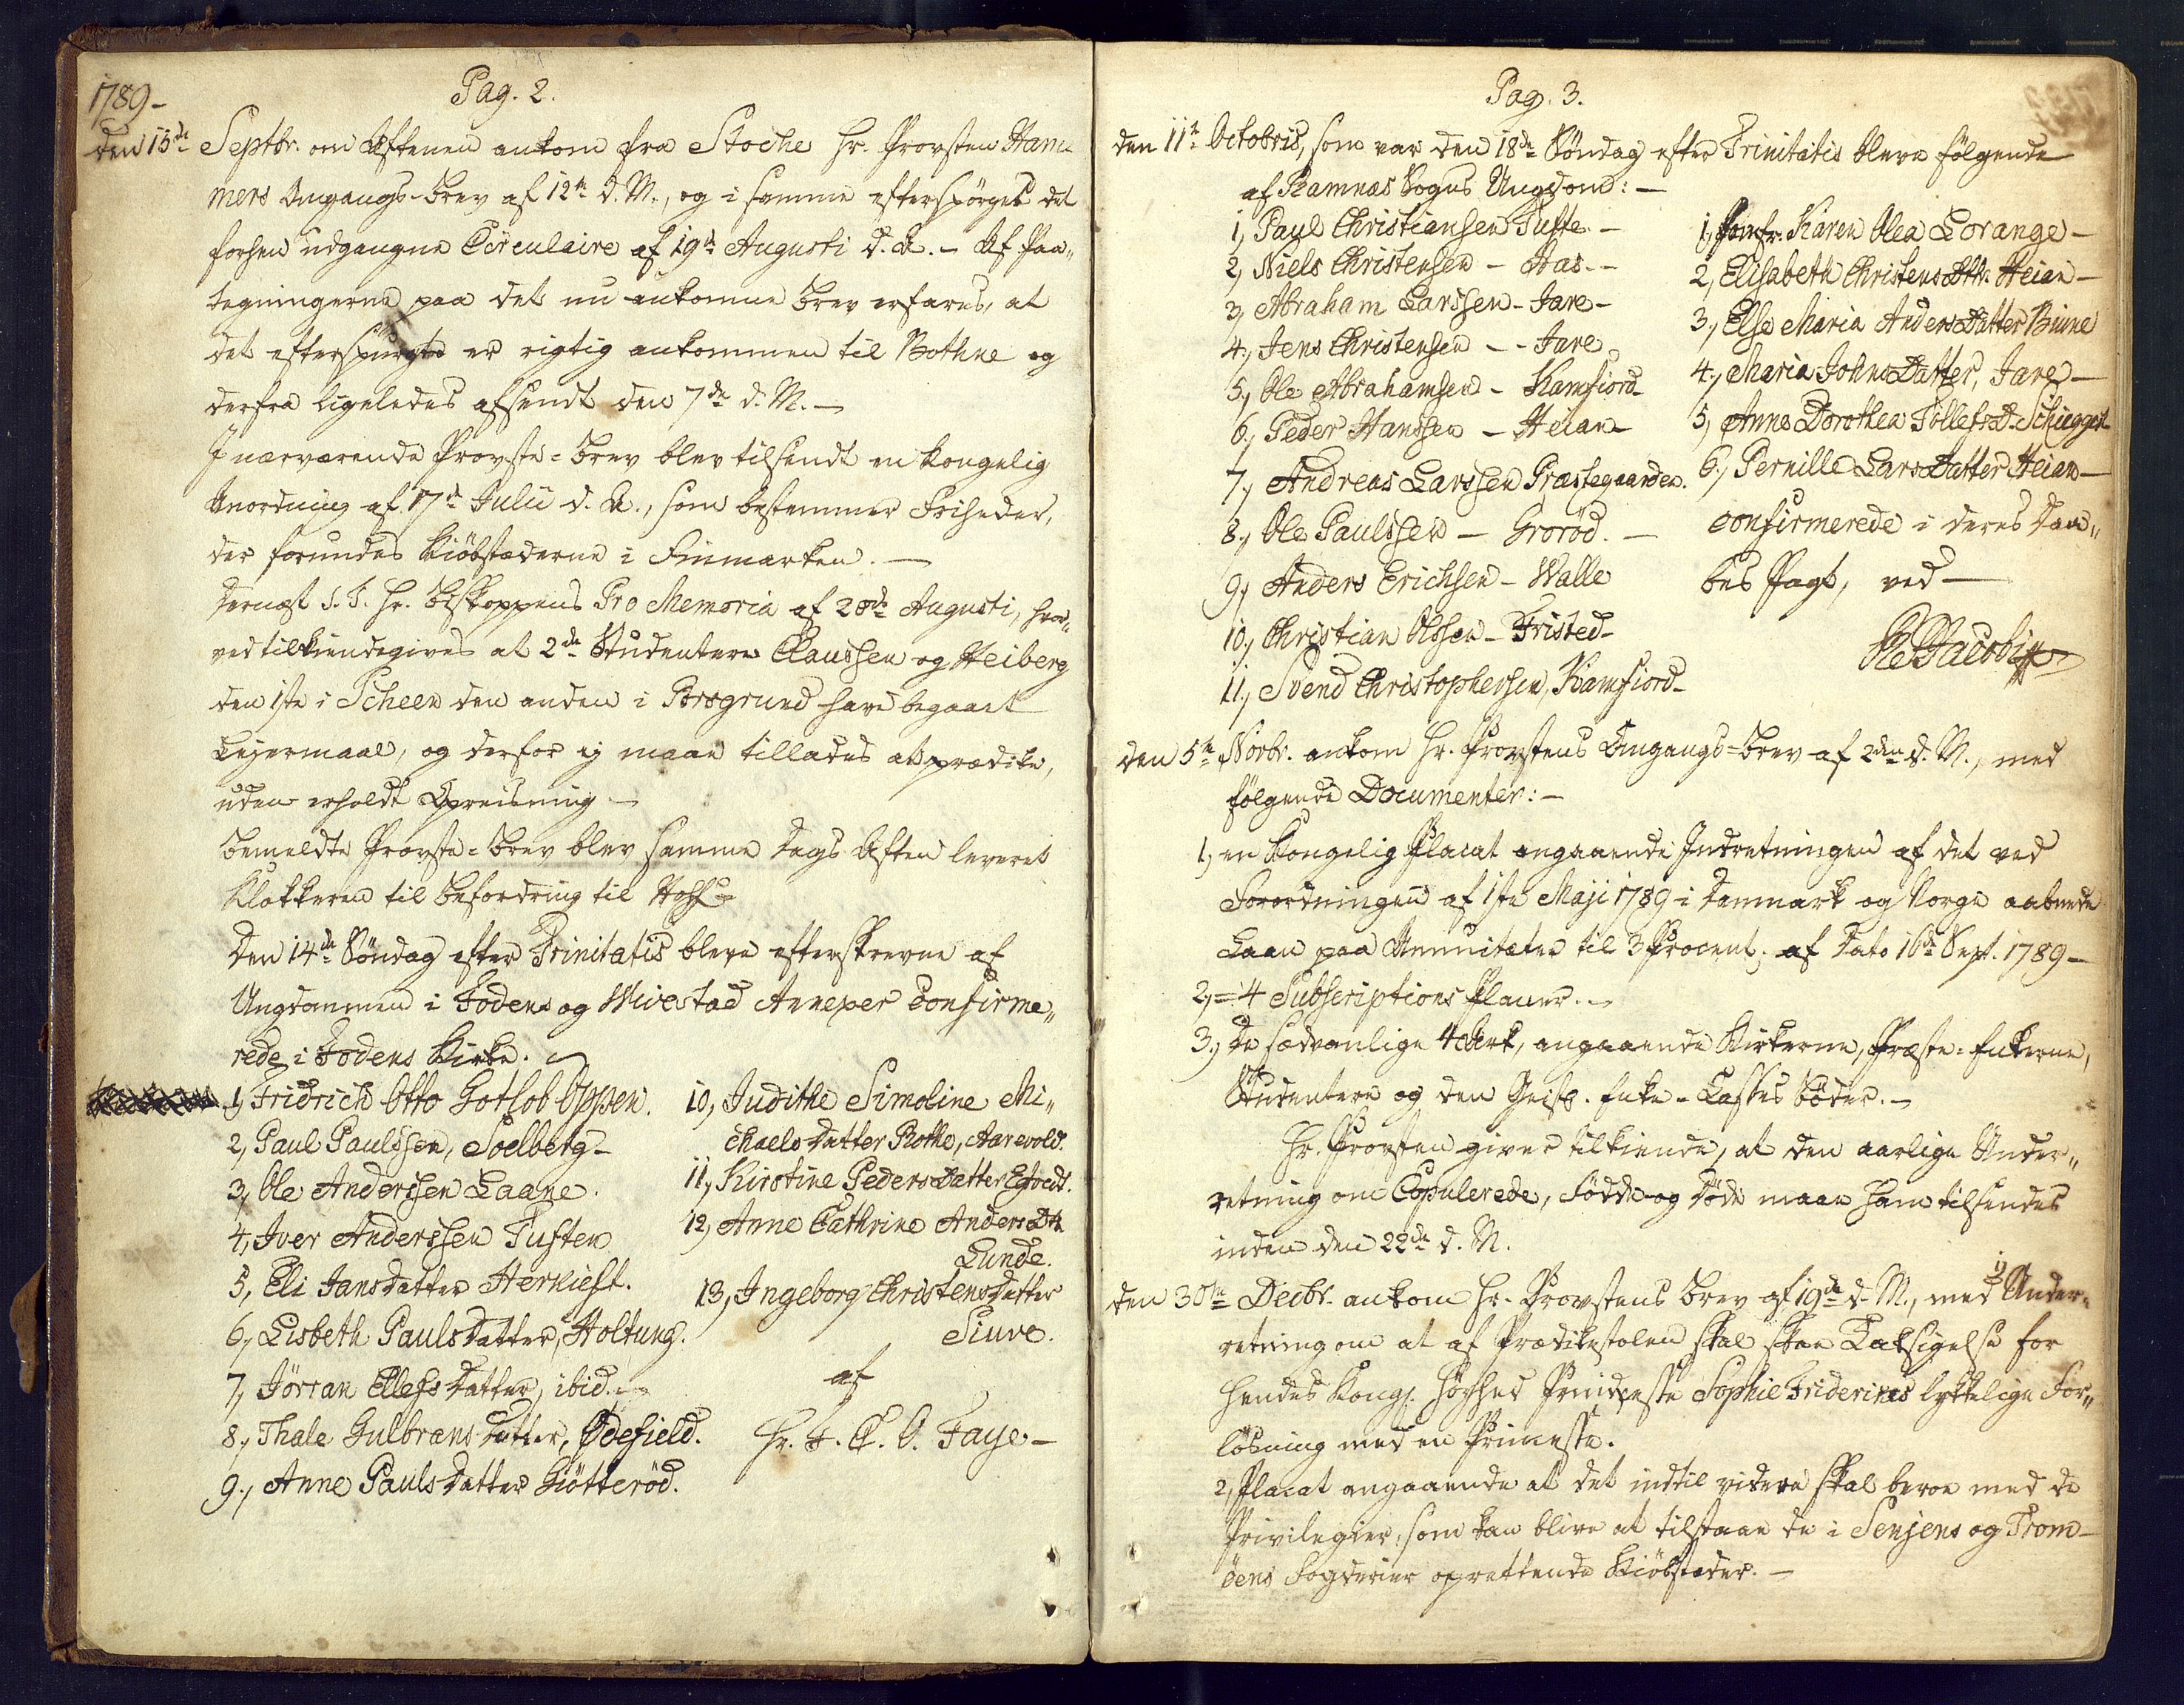 Pag. 2.
1789-
den 15de Septbr. om Aftenen ankom fra Stoche Hr. Provsten Ham¬
mers Omgangs-Brev af 12te d. M., og i samme efterspørges det
forhen udgangne Circulaire af 19de Augusti d. A. - Af Paa„
tegningerne paa det nu ankomne Brev erfares, at
det efterspurgte er rigtig ankommen til Bothne og
derfra ligeledes afsendt den 7de d. M. -
I nærværende Provste-Brev blev tilsendt en kongelig
Anordning af 17de Julii d. A., som bestemmer Friheder,
der forundes Kiøbstæderne i Finmarken. -
Dernæst S. T. Hr. Biskoppens Pro Memoria af 28de Augusti, hvor„
ved tilkiendegives at 2de Studentere Claussen og Heiberg
den 1ste i Scheen den anden i Porsgrund have begaaet
Leyermaal, og derfor ej maae tillades at prædike,
uden erholdt Opreisning -
Bemeldte Provste-Brev blev samme Dags Aften leveret
Klokkeren til Befordring til Hoff -
Den 14de Søndag efter Trinitatis bleve efterskrevne af
Ungdommen i Fodens og Wivestad Annexer confirme„
rede i Fodens Kirke.
1, Fridrich Otto Gotlob Oppen.
2, Paul Paulssen, Soelberg -
3, Ole Anderssen Laane.
4, Iver Anderssen Tuften
5, Eli Jansdatter Herkieft.
6, Lisbeth Paulsdatter, Holtung.
7, Jörran Ellefsdatter, ibid. -
8, Thale Gulbransdatter, Ødefield.
9, Anne Paulsdatter Giötteröd.
10, Judithe Simoline Mi„
chaelsdatter Rothe, Aarevold.
11, Kirstine Pedersdatter
12, Anne Cathrine AndersDtr
Lunde.
13, Ingeborg Christensdatter
Siuve.
af
Hr. F. C. O. Faye -
Pag. 3.
den 11te Octobris, som var den 18de Söndag efter Trinitatis bleve følgende
af Ramnæs Sogns Ungdom: -
1, Paul Christiansen Tufte. -
2, Niels Christensen - Aas. -
3, Abraham Larssen - Jare -
4, Jens Christensen - - Jare
5, Ole Abrahamsen - Kamfiord -
6, Peder Hanssen - Heian -
7, Andreas Larssen Præstegaarden.
8, Ole Paulssen - Groröd. -
9, Anders Erichsen - Walle
10, Christian Olssen - Fristed -
11, Svend Christophersen, Kamfiord -
1, Jomfr. Karen Olea Lorange -
2, Elisabeth ChristensDtr. Heian -
3, Else Maria AndersDatter Biune
4, Maria JohnsDatter, Jare -
5, Anne Dorothea TollefsD. Schiegge
6, Pernille LarsDatter Heian -
confirmerede i deres Daa„
bes Pagt, ved -
Jacobi
den 5te Novbr. ankom Hr. Provstens Omgangs-Brev af 2den d. M., med
følgende Documenter: -
1, en Kongelig Placat angaaende Indretningen af det ved
Forordningen af 1ste Maji 1789 i Danmark og Norge aabnede
Laan paa Annuiteter til 3 Procent, af Dato 16de Sept. 1789 -
2, = 4 Subscriptions Planer. -
3, De sædvanlige 4 Ark, angaaende Kirkerne, Præste-Enkerne,
Studentere og den Geistl. Enke-Casses Bøder. -
Hr. Provsten giver tilkiende, at den aarlige Under„
retning om Copulerede, Födde og Döde maae ham tilsendes
inden den 22de d. M.
den 30te Decbr. ankom Hr. Provstens Brev af 19de d. M., med 1, Under„
retning om at af Prædikestolen skal skee Taksigelse for
Hendes Kongl. Høyhed Prindsesse Sophie Friderices lykkelige For„
lösning med en Princesse.
2, Placat angaaende at det indtil videre skal beroe med de
Privilegier, som kan blive at tilstaae de i Senjens og Trom-
söens Fogderier oprettende Kiöbstæder. -